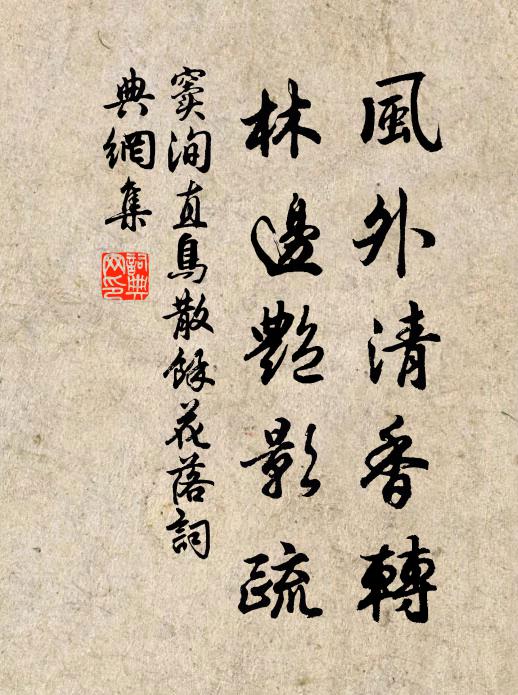 風外清香轉
林邊艷影疏
竇洵直鳥散餘花落詞
典網集
詞典
网印